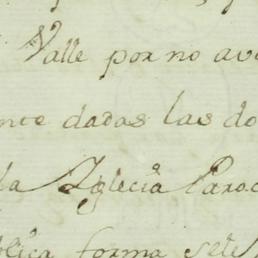 Valle por no av
nte dadas las do
la Yglecia Paroc
blica forma sele